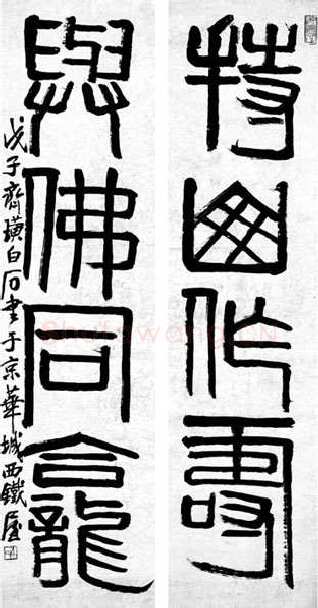 持山作壽
與佛同龕
戊子齊璜白石書于京華城西鐵屋